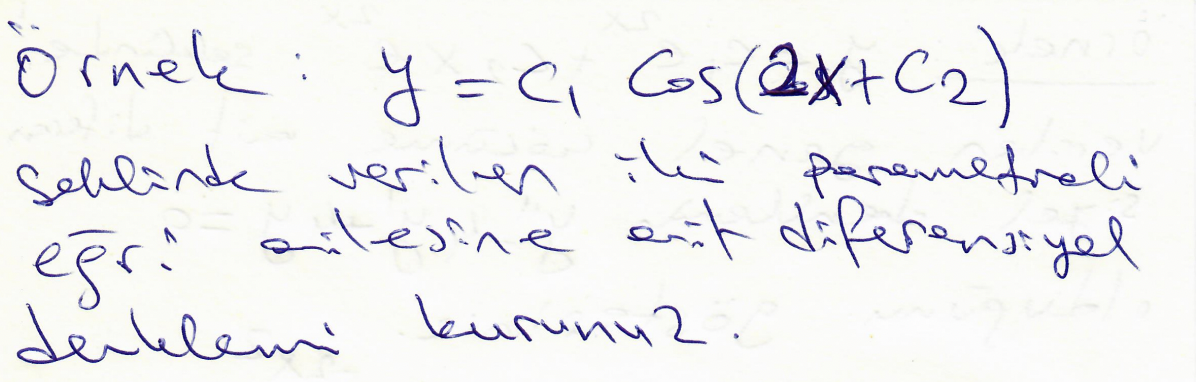 Örnek : y = C₁ Cos(2x+C₂)
şeklinde verilen iki parametreli
eğri ailesine ait diferensiyel
denklemi kurunuz.